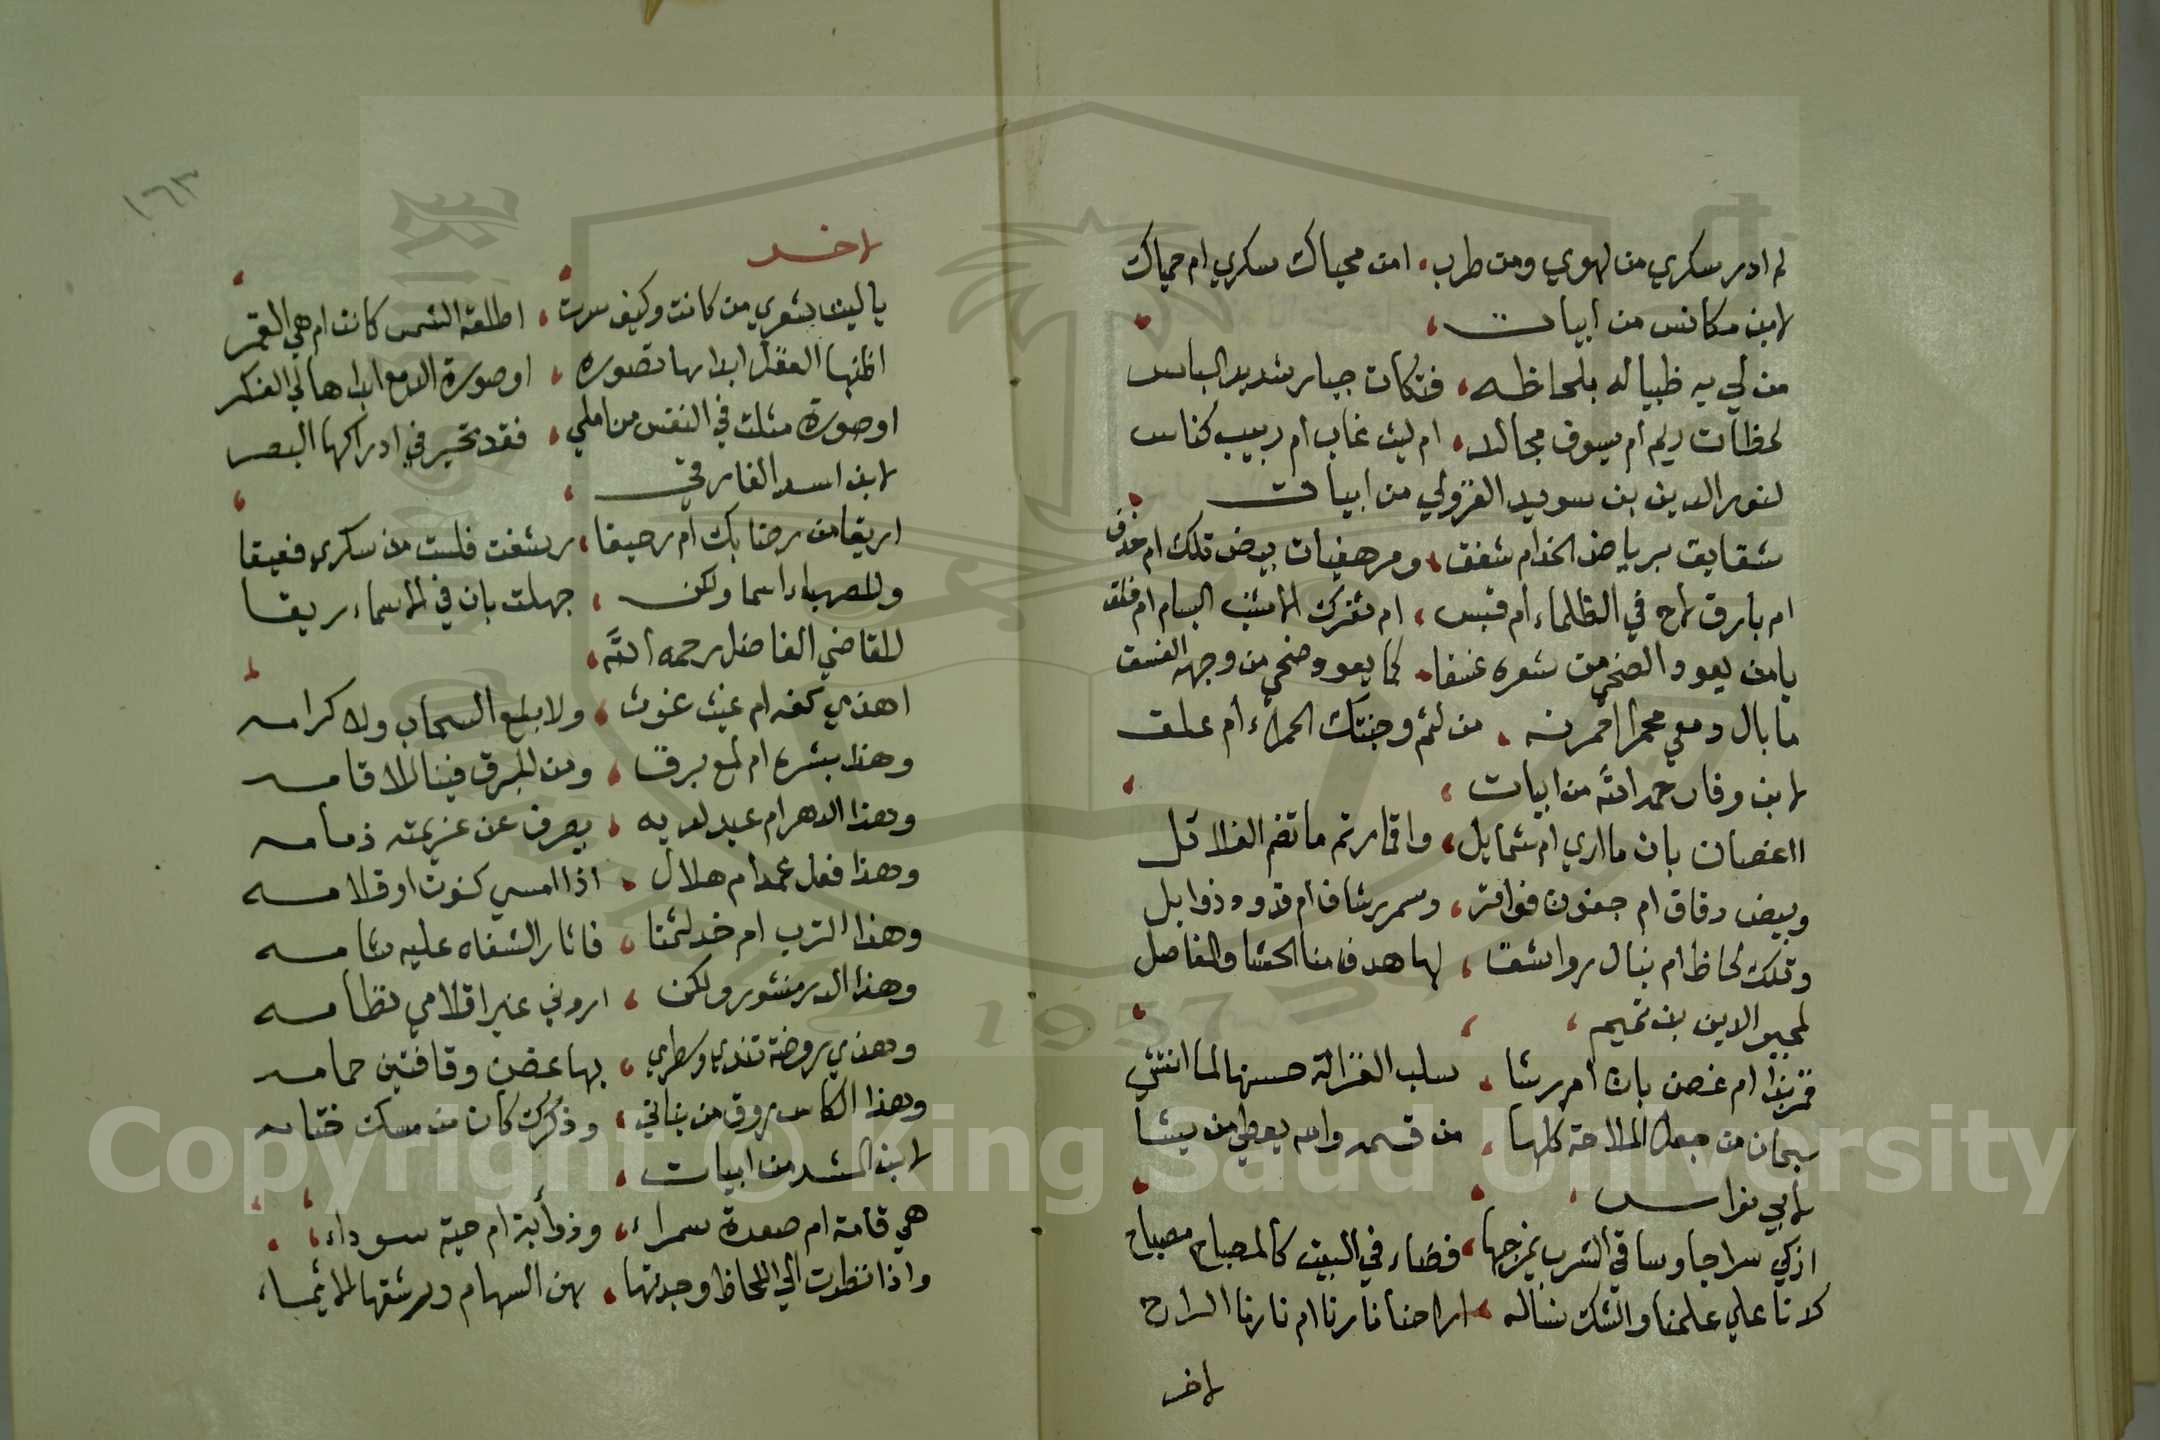 لم ادر سكري من لهوي ومن طرب، امن محياك سكري ام حمياك
لابن مكانس من ابيات
من لي به ظبيا له بلحاظه، فتكات جبار شديد الباس
لحظات ريم ام سيوف مجالد، ام ليث غاب ام ربيب كناس
لنور الدين بن سويد الغزولي من ابيات
شقايق برياض الخد ام شفق، ومرهفات بيض تلك ام حدق
ام بارق لاح في الظلماء ام قبس، ام ثغرك الاشنب البسام ام فلق
يا من يعود الضحى من شعره غسقا، كما يعود ضحى من وجهه الغسق
ما بال دمعي محمرا احمرنه، من لثم وجنتك الحمراء ام علق
لابن وفا رحمه الله من ابيات
ااغصان بان ما اري ام شمايل، واقمار تم ما تضم الغلائل
وبيض رقاق ام جفون فواتر، وسمر رشاق ام قدود ذوابل
وتلك لحاظ ام نبال رواشقا، لها هدف منا الحشا والمفاصل
لمجير الدين بن تميم
قمر بدا ام غصن بان ام رشا، سلب الغزالة حسنها لما انتشي
سبحان من جعل الملاحة كلها، من قسمه والله يعطي من يشا
لابي نواس
اذكي سراجا وساقي الشرب يمزجها، فضاء في البيت كالمصباح مصباح
كدنا علي علمنا والشك نساله، اراحنا نارنا ام نارنا الراح
لاخر
١٦٣
لاخر
يا ليت شعري من كانت وكيف سرت، اطلعة الشمس كانت ام هي القمر
اظنها العقل ابداها تصوره، او صورة الدمع ابداها لي الفكر
او صورة مثلت في النفس من املي، فقد تحير في ادراكها البصر
لابن اسد الفارقي
اريقا من رضابك ام رحيقا، رشفت فلست من سكري مفيقا
وللصهباء اسما ولكن، جهلت بان في الاسماء ريقا
للقاضي الفاضل رحمه الله
اهذي كفه ام غيث غوث، ولا بلغ السحاب ولا كرامه
وهذا بشره ام لمع برق، ومن للبرق فينا بالاقامه
وهذا الدهر ام عبد لديه، يصرف عن عزيمته زمامه
وهذا نعل غمد ام هلال، اذا امسي كنون او قلامه
وهذا الترب ام خد لثمنا، فاثار الشفاه عليه شامه
وهذا الدر منثور ولكن، اروني غير اقلامي نظامه
وهذي روضة تندي وسطري، بها غصن وقافتين حمامه
وهذا الكاس روق من بناني، وذكرك كان من مسك ختامه
لابن المشد من ابيات
هي قامة ام صعدة سمراء، وذؤابة ام حية سوداء
واذا نظرت الي اللحاظ وجدتها، هن السهام ورشقها الايماء
Copyright © King Saud University
1957